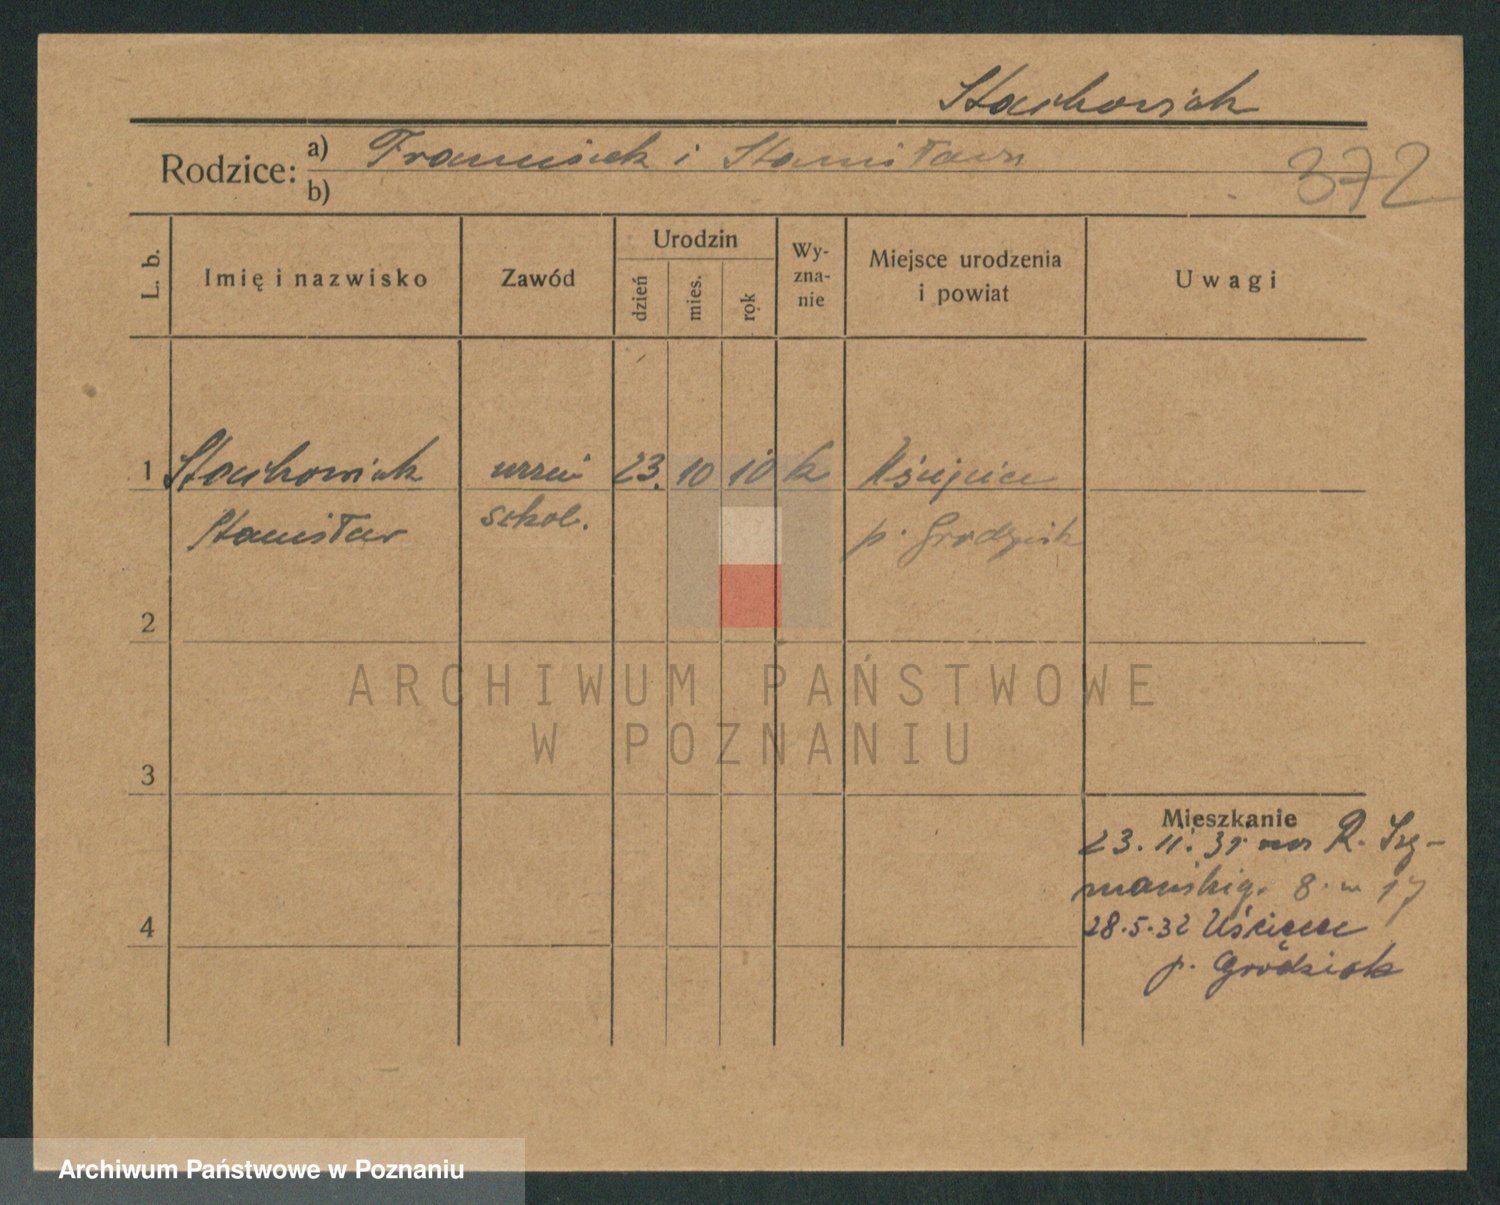 Stachowiak
Rodzice: a) Franciszek i Stanisława
b)
372
L. b.
Imię i nazwisko
Zawód
Urodzin
dzień
mies.
rok
Wy-
zna-
nie
Miejsce urodzenia
i powiat
Uwagi
1 Stachowiak uczeń 23. 10 10 k Uścięcice
Stanisław szkol. p. Grodzisk
2
ARCHIWUM PAŃSTWOWE
W POZNANIU
3
Mieszkanie
23. 11. 31. R. Szy-
mańskieg. 8. m 17
4
28.5.32 Uścięcice
p. Grodzisk
Archiwum Państwowe w Poznaniu